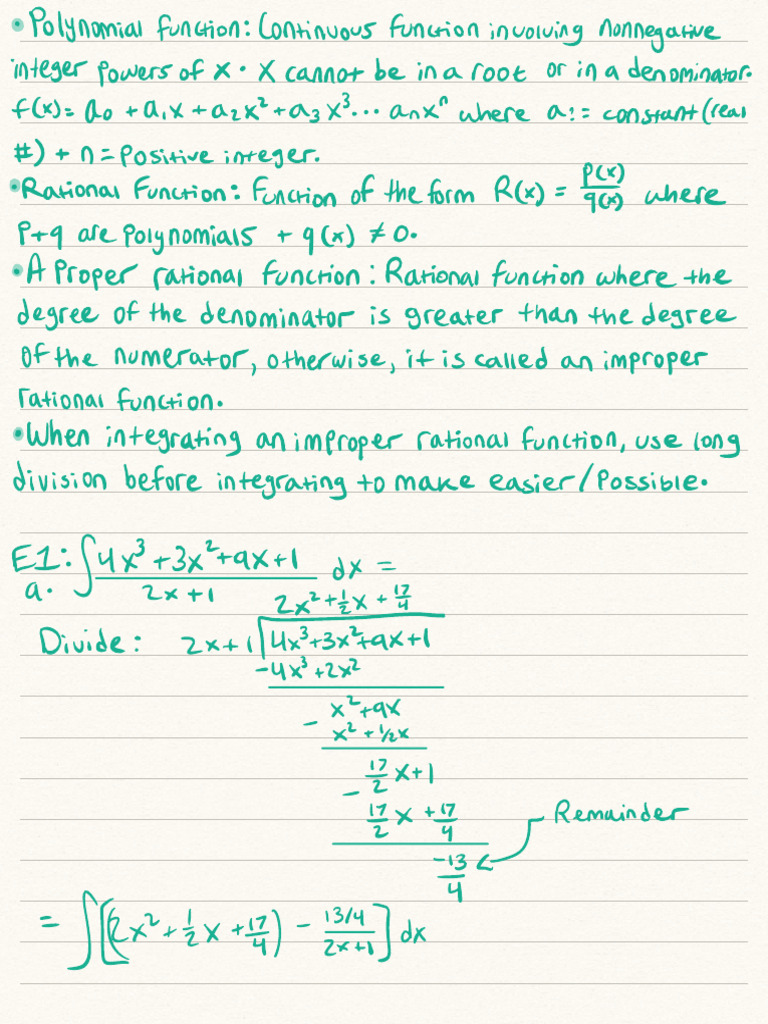 • Polynomial Function: Continuous function involving nonnegative
integer powers of x. X cannot be in a root or in a denominator.
f(x) = a₀ + a₁x + a₂x² + a₃x³... aₙxⁿ where a:= constant (real
#) + n = positive integer.
• Rational Function: Function of the form R(x) = p(x)/q(x) where
p + q are polynomials + q(x) ≠ 0.
• A Proper rational function: Rational function where the
degree of the denominator is greater than the degree
of the numerator, otherwise, it is called an improper
rational function.
• When integrating an improper rational function, use long
division before integrating to make easier/possible.
E1: ∫ (4x³ + 3x² + 9x + 1)/(2x + 1) dx =
a.
2x² + 1/2 x + 17/4
Divide: 2x+1 | 4x³ + 3x² + 9x + 1
- 4x³ + 2x²
x² + 9x
- x² + 1/2x
17/2 x + 1
- 17/2 x + 17/4
Remainder
-13/4
= ∫ [(2x² + 1/2 x + 17/4) - (13/4)/(2x+1)] dx